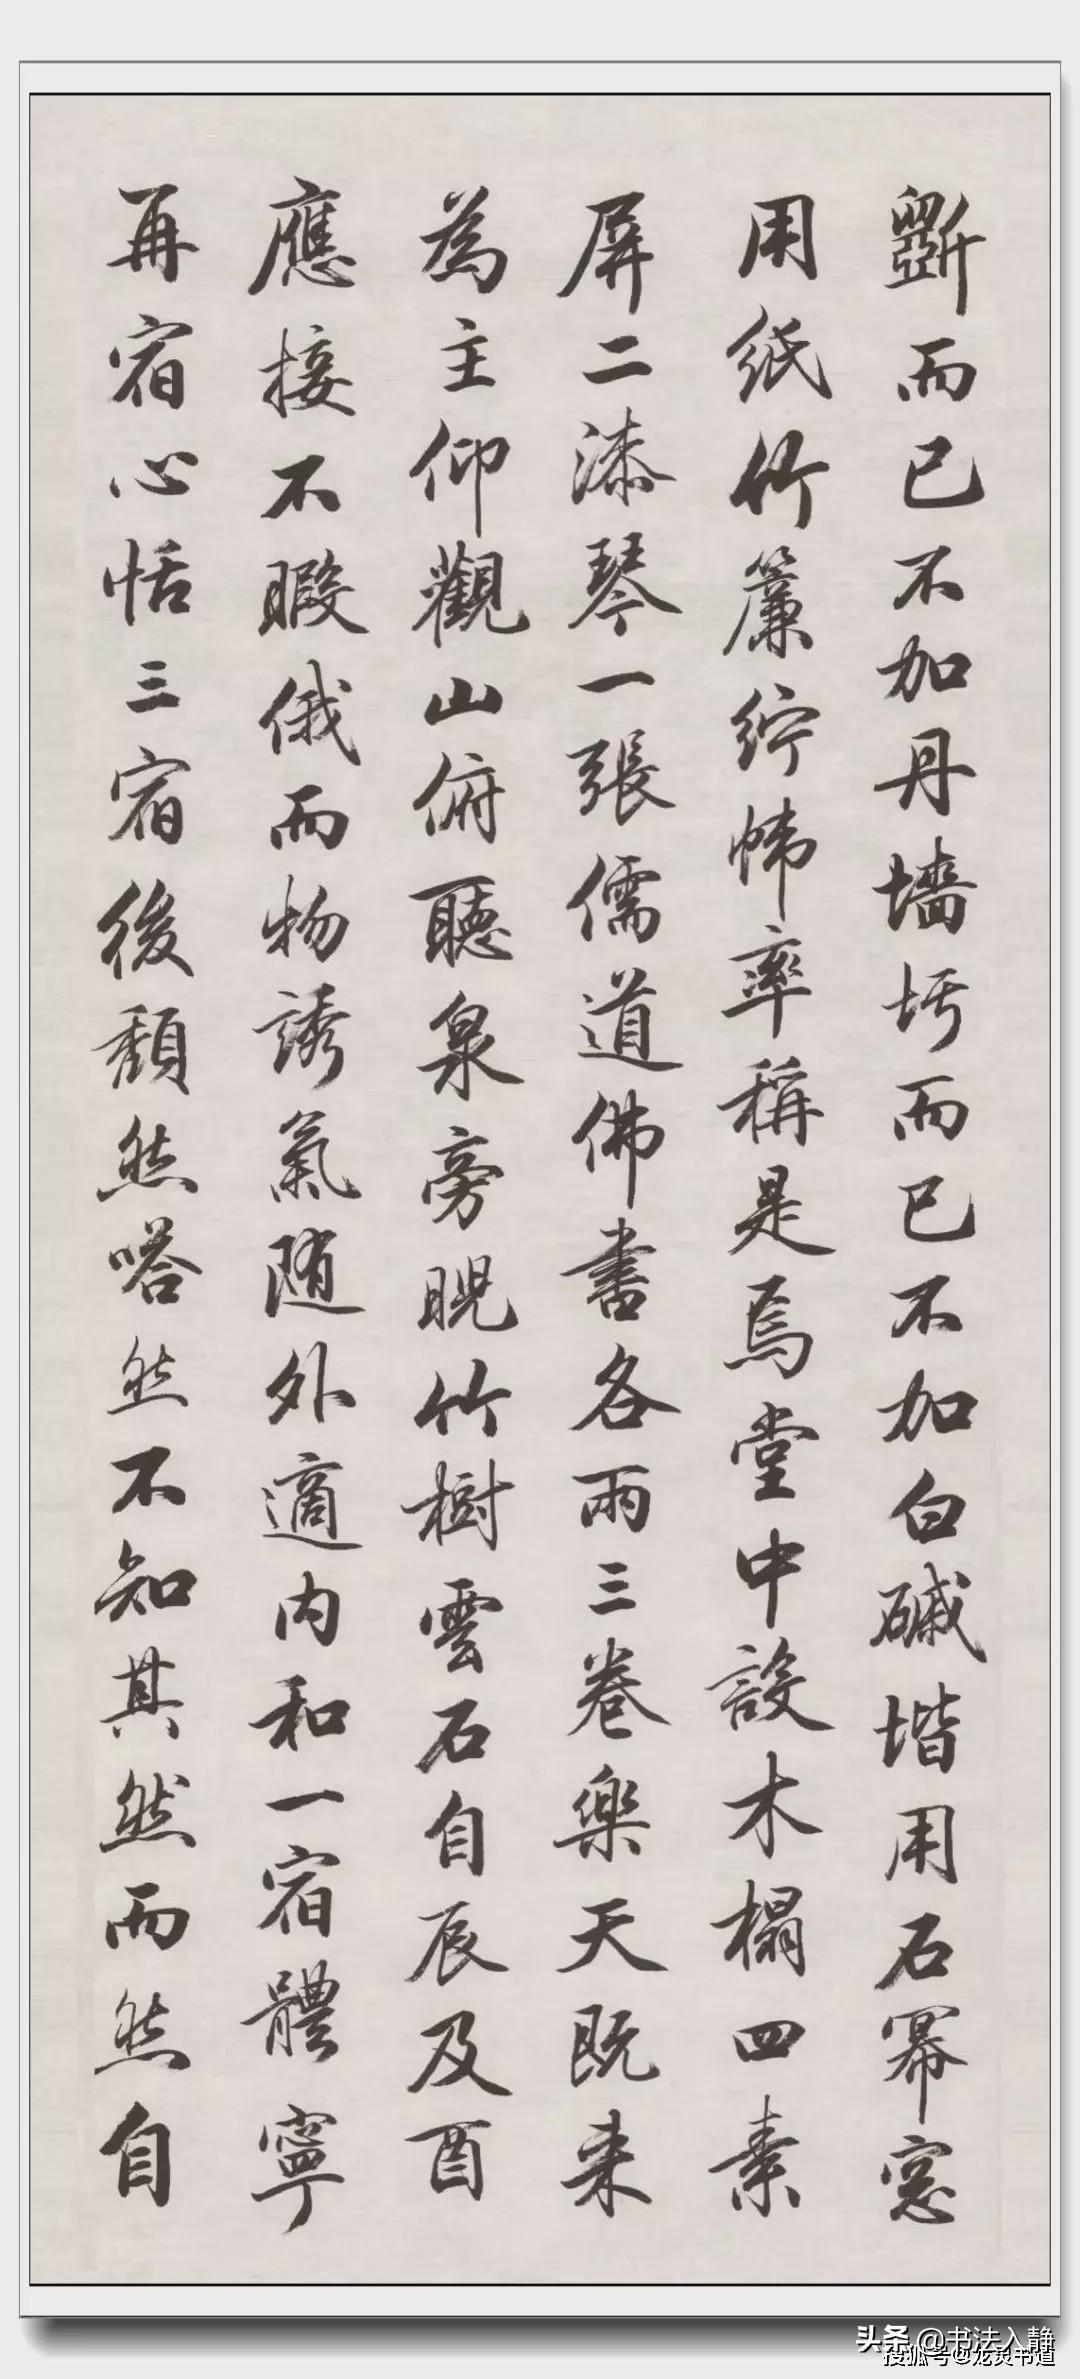 斲而已不加丹墻圬而已不加白磩堦用石冪窓
用紙竹簾紵幃率稱是焉堂中設木榻四素
屏二漆琴一張儒道佛書各兩三卷樂天既来
為主仰觀山俯聽泉旁睨竹樹雲石自辰及酉
應接不暇俄而物誘氣随外適內和一宿體寧
再宿心恬三宿後頹然嗒然不知其然而然自
头条@书法入静
搜狐号@龙灵书道